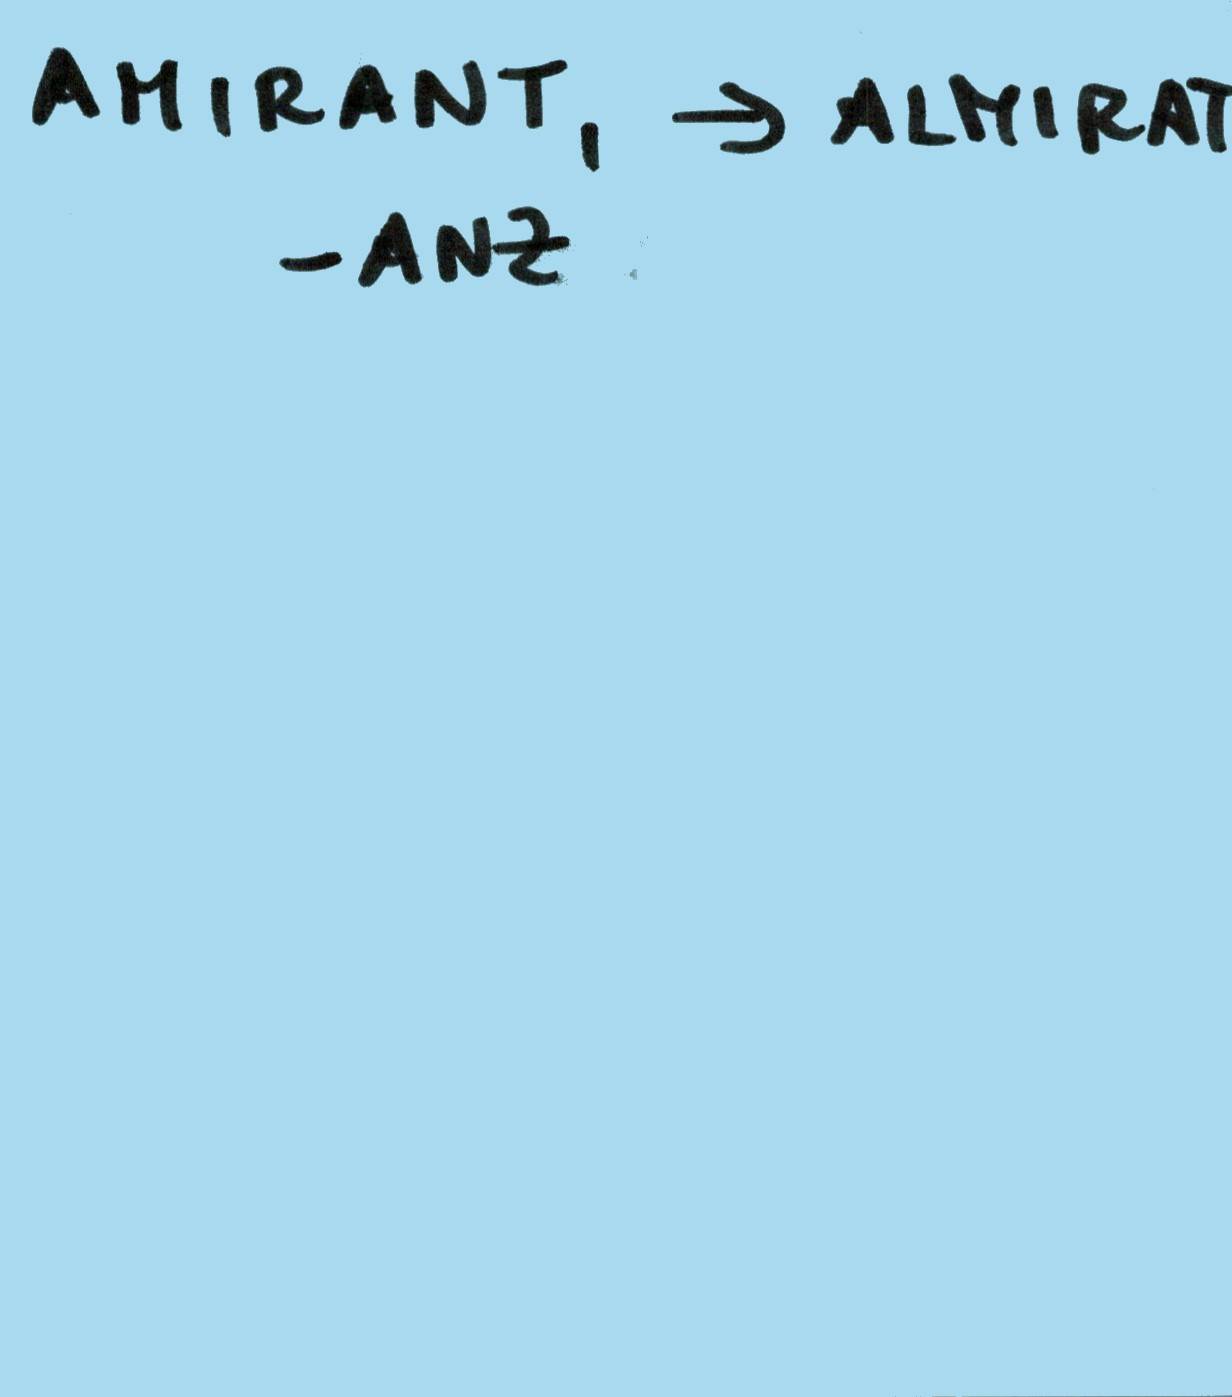 AMIRANT, → ALMIRAT
-ANZ